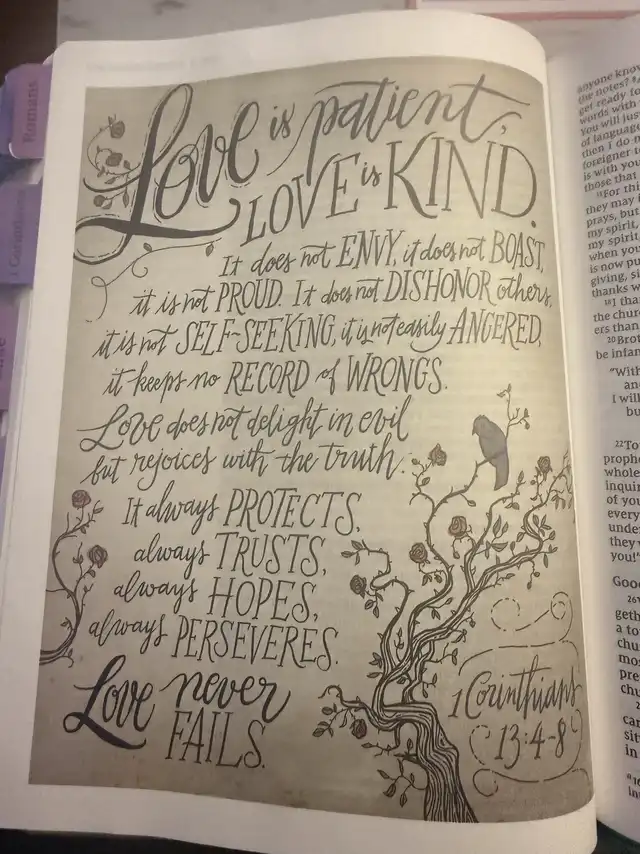 Love is patient,
LOVE is KIND.
It does not ENVY, it does not BOAST,
it is not PROUD. It does not DISHONOR others,
it is not SELF-SEEKING, it is not easily ANGERED,
it keeps no RECORD of WRONGS.
Love does not delight in evil
but rejoices with the truth.
It always PROTECTS,
always TRUSTS,
always HOPES,
always PERSEVERES.
Love never
FAILS.
1 Corinthians
13:4-8
Romans
1 Corinthians
anyone know
the notes? 8
get ready fo
words with
You will just
of language
then I do n
foreigner to
is with you
those that
13For thi
they may i
prays, but
my spirit,
my spirit,
when you
is now pu
giving, si
thanks w
18I than
the churc
ers than
20Brot
be infan
"With
an
I will
bu
22To
prophe
whole
inquir
of you
every
under
they w
you!"
Good
26W
geth
a to
chu
mos
pre
chu
car
sit
in